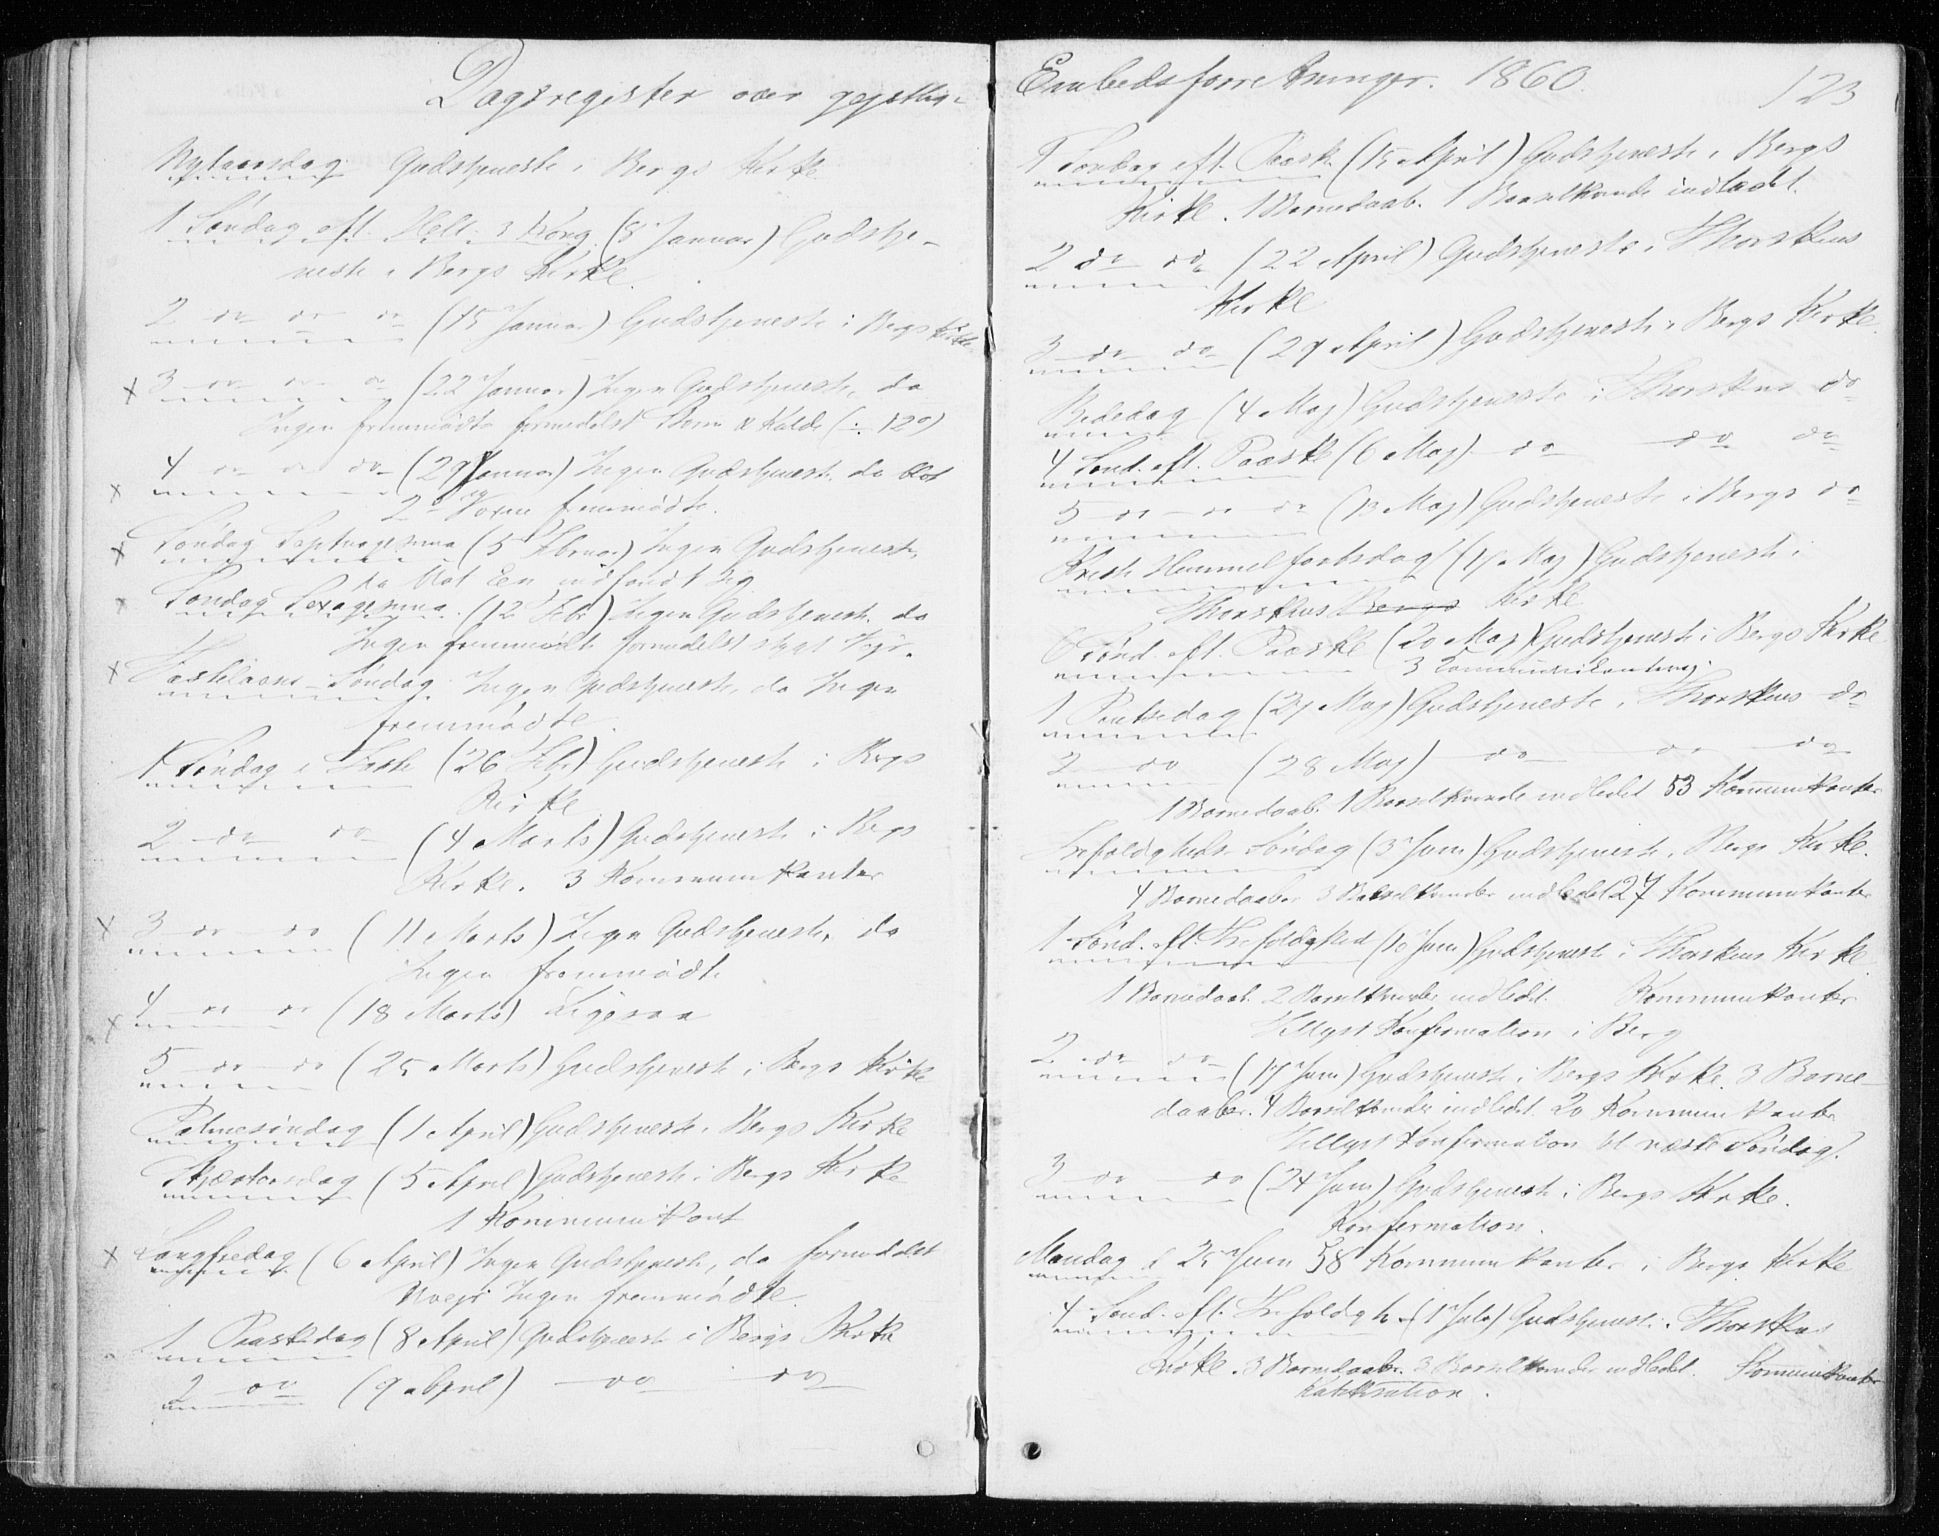 Dagsregister over gejstlig-
Nytaarsdag Gudstjeneste i Bergs Kirke
1 Søndag eft. Hell. 3 Kong. (8 Januar) Gudstje-
neste i Bergs Kirke.
2 do do do (15 Januar) Gudstjeneste i Bergs Kirke
x 3 do do do (22 Januar) Ingen Gudstjeneste, da
Ingen fremmødte formedelst Storm & Kulde (÷ 12°)
x 4 do do do (29 Januar) Ingen Gudstjeneste, da blot
2 Voxne fremmødte.
x Søndag Septuagesima (5 Februar) Ingen Gudstjeneste,
da blot Een indfandt sig
x Søndag Sexagesima. (12 Febr) Ingen Gudstjeneste, da
Ingen fremmødte formedelst stygt Vejr.
x Fastelavns-Søndag. Ingen Gudstjeneste, da Ingen
fremmødte.
1 Søndag i Faste (26 Febr) Gudstjeneste i Bergs
Kirke
2 do do (4 Marts) Gudstjeneste i Bergs
Kirke. 3 Kommunikanter
x 3 do do (11 Marts) Ingen Gudstjeneste, da
Ingen fremmødte
x 4 do do (18 Marts) Ligesaa
5 do do (25 Marts) Gudstjeneste i Bergs Kirke
Palmesøndag (1 April) Gudstjeneste i Bergs Kirke
Skjærtorsdag (5 April) Gudstjeneste i Bergs Kirke
1 Kommunikant
x Langfredag (6 April) Ingen Gudstjeneste, da formedelst
Uvejr Ingen fremmødte.
1 Paaskedag (8 April) Gudstjeneste i Bergs Kirke
2 do (9 April) do do
Embedsforretninger. 1860.
123
1 Søndag eft. Paaske (15 April) Gudstjeneste i Bergs
Kirke. 1 Barnedaab. 1 Barselkvinde indledet.
2 do do (22 April) Gudstjeneste i Thorskens
Kirke
3 do do (29 April) Gudstjeneste i Bergs Kirke.
Bededag (4 Maj) Gudstjeneste i Thorskens do
4 Sønd. eft. Paaske (6 Maj) do do do
5 do do do (13 Maj) Gudstjeneste i Bergs do
Kristi Himmelfartsdag (17 Maj) Gudstjeneste i
Thorskens Bergs Kirke
6 Sønd. eft. Paaske (20 Maj) Gudstjeneste i Bergs Kirke
3 Communikanter
1 Pintsedag (27 Maj) Gudstjeneste i Thorskens do
2 do (28 Maj) do do do
1 Barnedaab. 1 Barselkvinde indledet 53 Kommunikanter
Trefoldigheds-Søndag (3 Juni) Gudstjeneste i Bergs Kirke.
4 Barnedaaber 3 Barselkvinder indledet 27 Kommunikanter
1 Sønd. eft. Trefoldighed (10 Juni) Gudstjeneste i Thorskens Kirke
1 Barnedaab. 2 Barselkvinder indledet. Kommunikanter
Tillyst Konfirmation i Berg
2 do do (17 Juni) Gudstjeneste i Bergs Kirke. 3 Barne-
daaber. 4 Barselkvinder indledet. 20 Kommunikanter
Tillyst Konfirmation til næste Søndag.
3 do do (24 Juni) Gudstjeneste i Bergs Kirke.
Konfirmation.
Mandag d 25 Juni 58 Kommunikanter i Bergs Kirke
4 Sønd. eft. Trefoldigh. (1 Juli) Gudstjeneste i Thorskens
Kirke. 3 Barnedaaber. 3 Barselkvinder indledet. Kommunikanter
Katekisation.